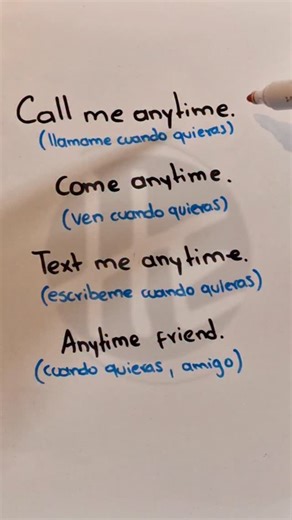 Call me anytime.
(llamame cuando quieras)
Come anytime.
(ven cuando quieras)
Text me anytime.
(escribeme cuando quieras)
Anytime friend.
(cuando quieras, amigo)